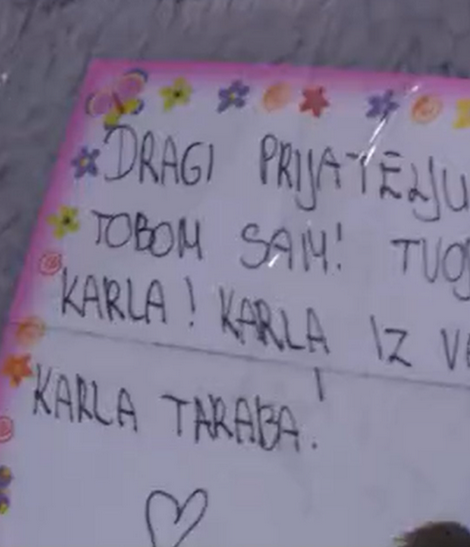 DRAGI PRIJATELJU
TOBOM SAM! TVOJ
KARLA! KARLA IZ
KARLA TARABA.